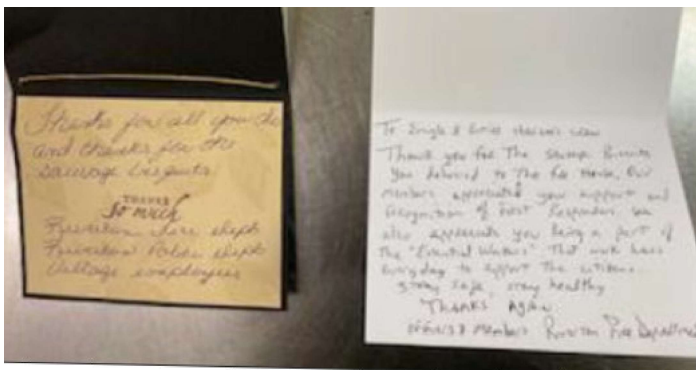 Thanks for all you do
and thanks for the
sausage biscuits
THANKS
So much
Fire dept
Police dept
Village employees
To
Thank you for The Sausage Biscuits
You delivered to The Fire House. Our
members appreciated your support and
recognition of First Responders. We
also appreciate you being a part of
The "Essential Workers" That work hard
everyday to support The citizens.
Stay safe, stay healthy
THANKS AgAin
Members Fire Department